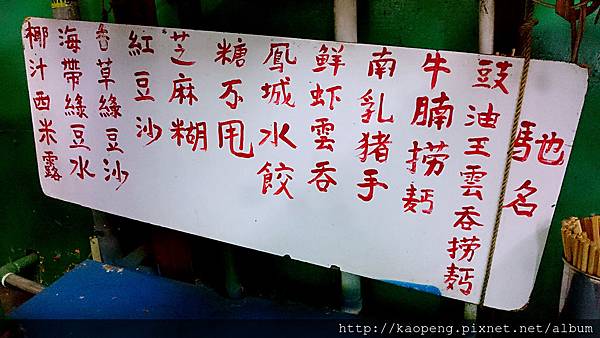 馳名
豉油王雲吞撈麪
牛腩撈麪
南乳猪手
鮮虾雲吞
鳳城水餃
糖不甩
芝麻糊
紅豆沙
草綠豆沙
海帶綠豆水
椰汁西米露
http://kaopeng.pixnet.net/album